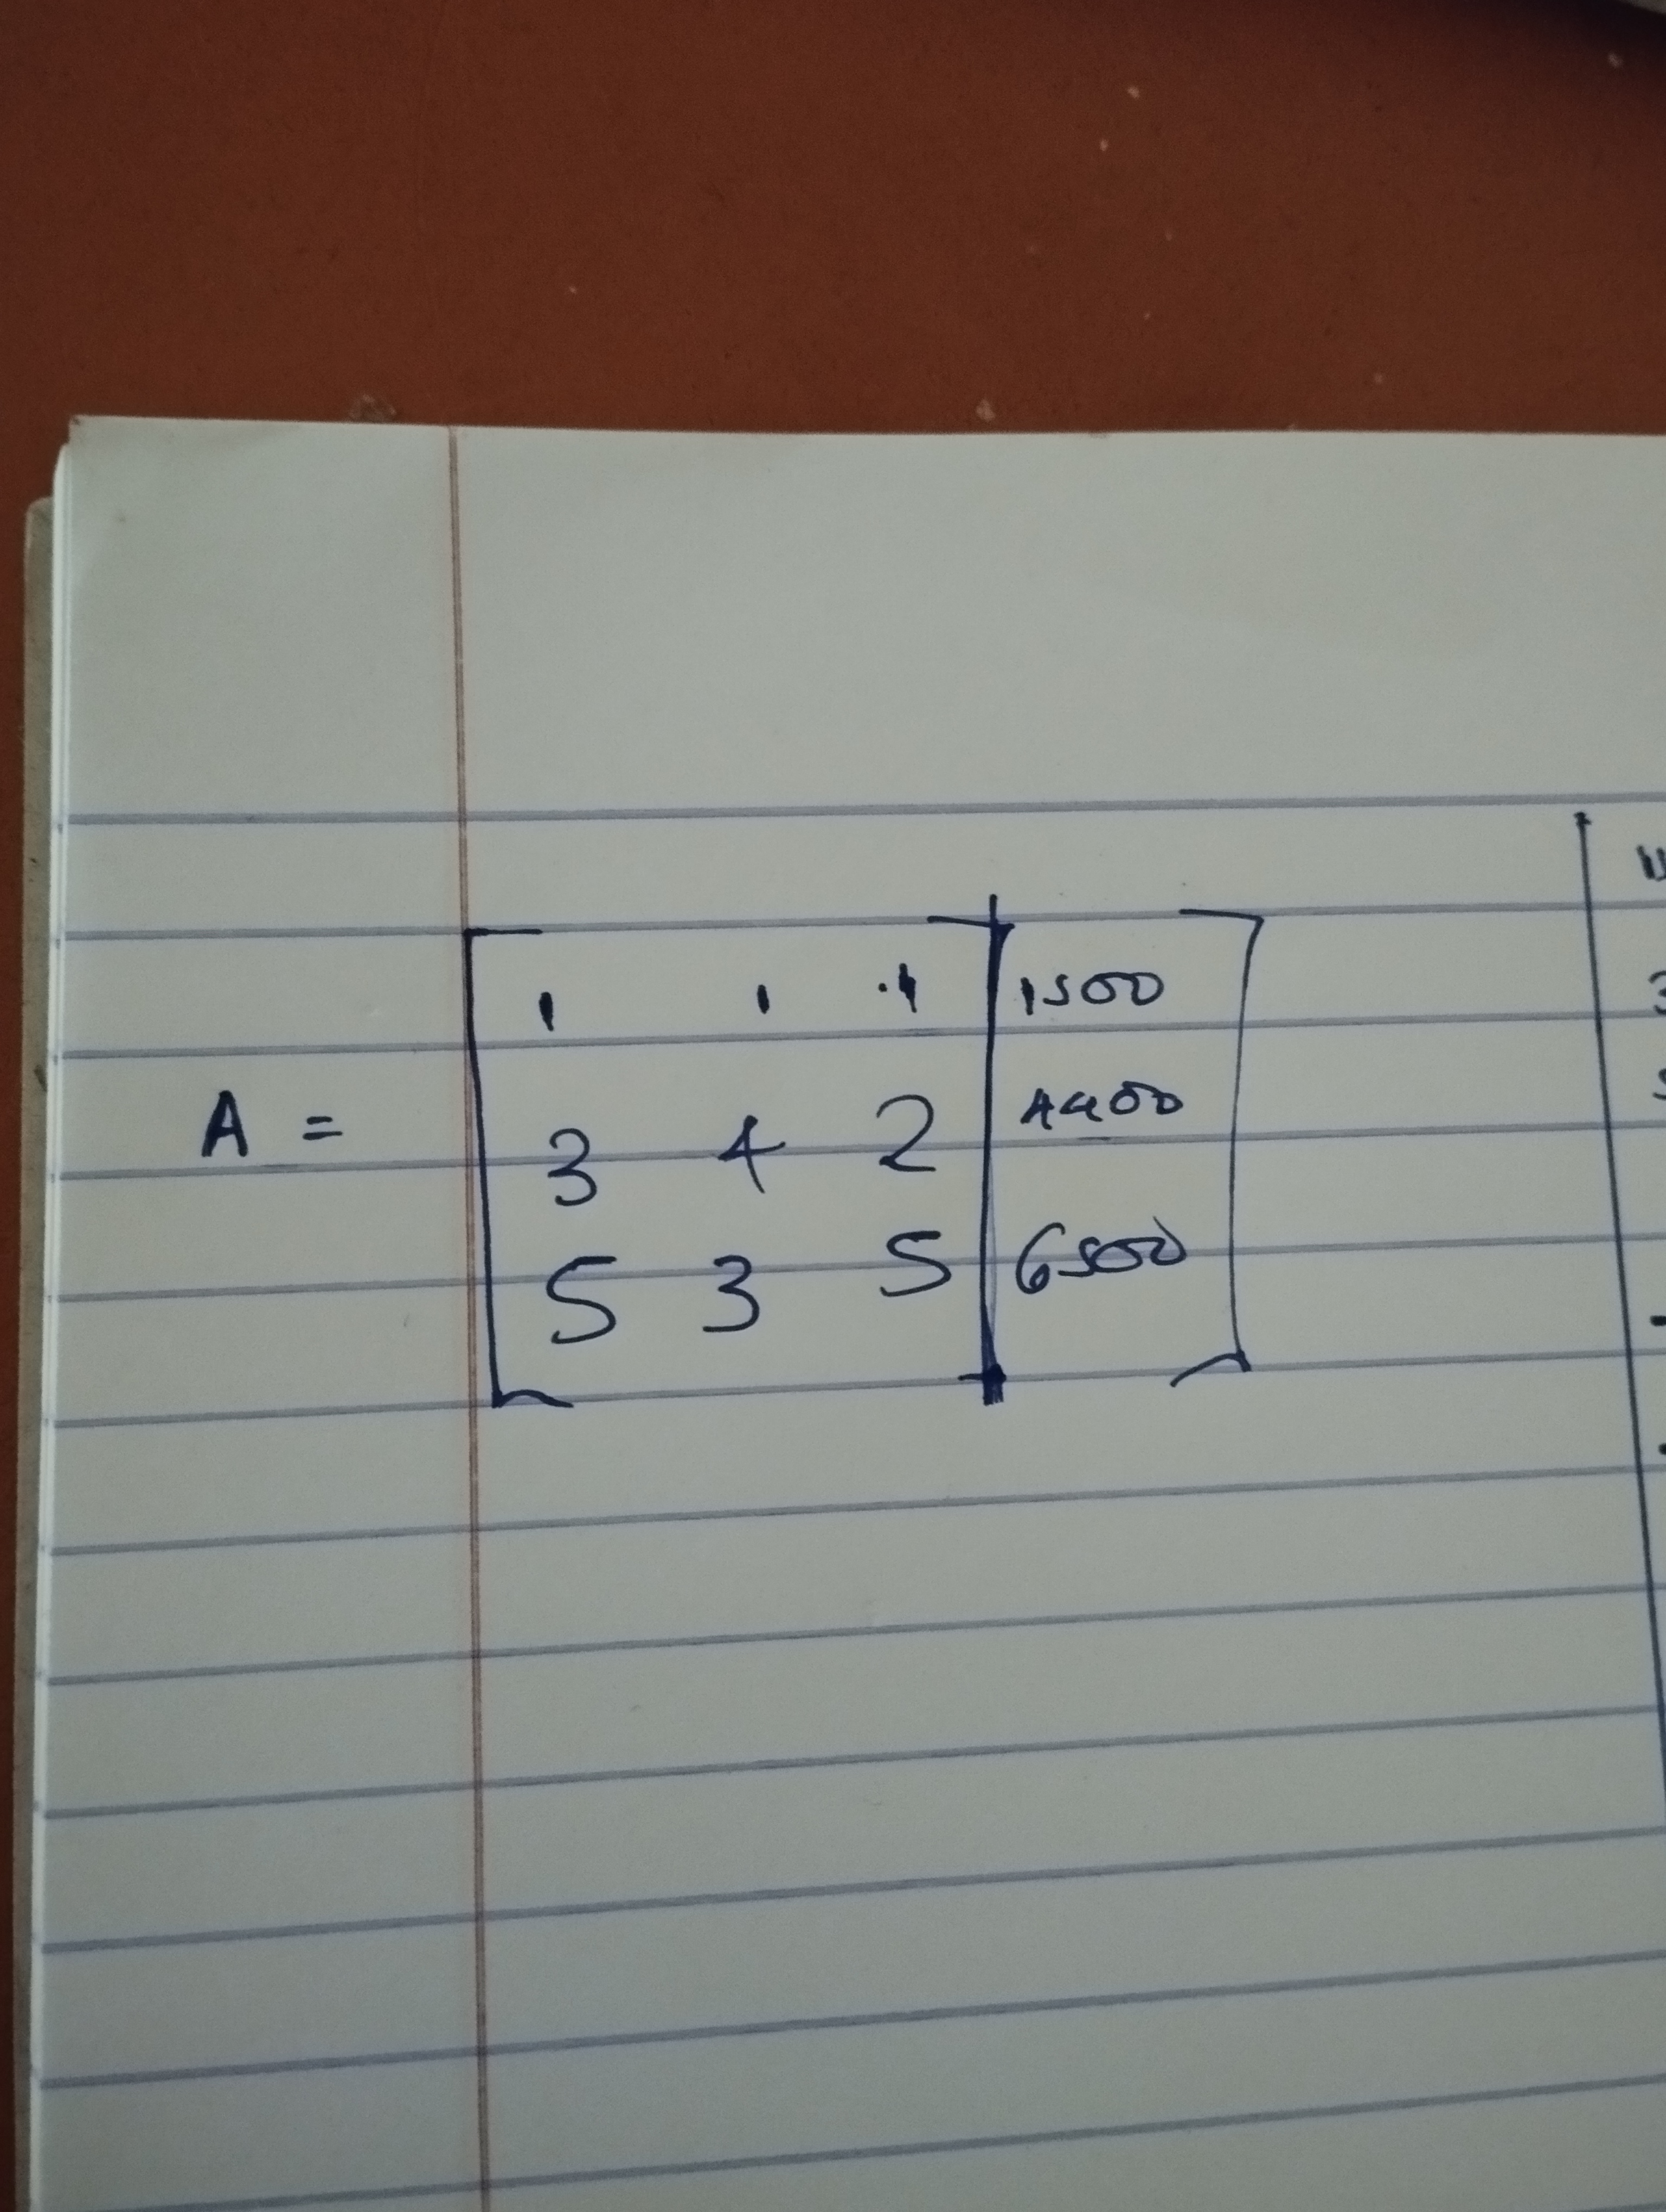 1 1 1 1500
A =
3 4 2 4400
5 3 5 6500